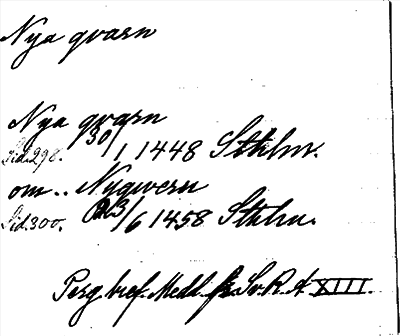 Nya qvarn
Nya qvarn
Sid. 298. 30/1 1448 Sthlm.
om.. Nyqwern
Sid. 300. 23/6 1458 Sthlm.
Perg. bref. Medd. fr. Sv. R. A XIII.